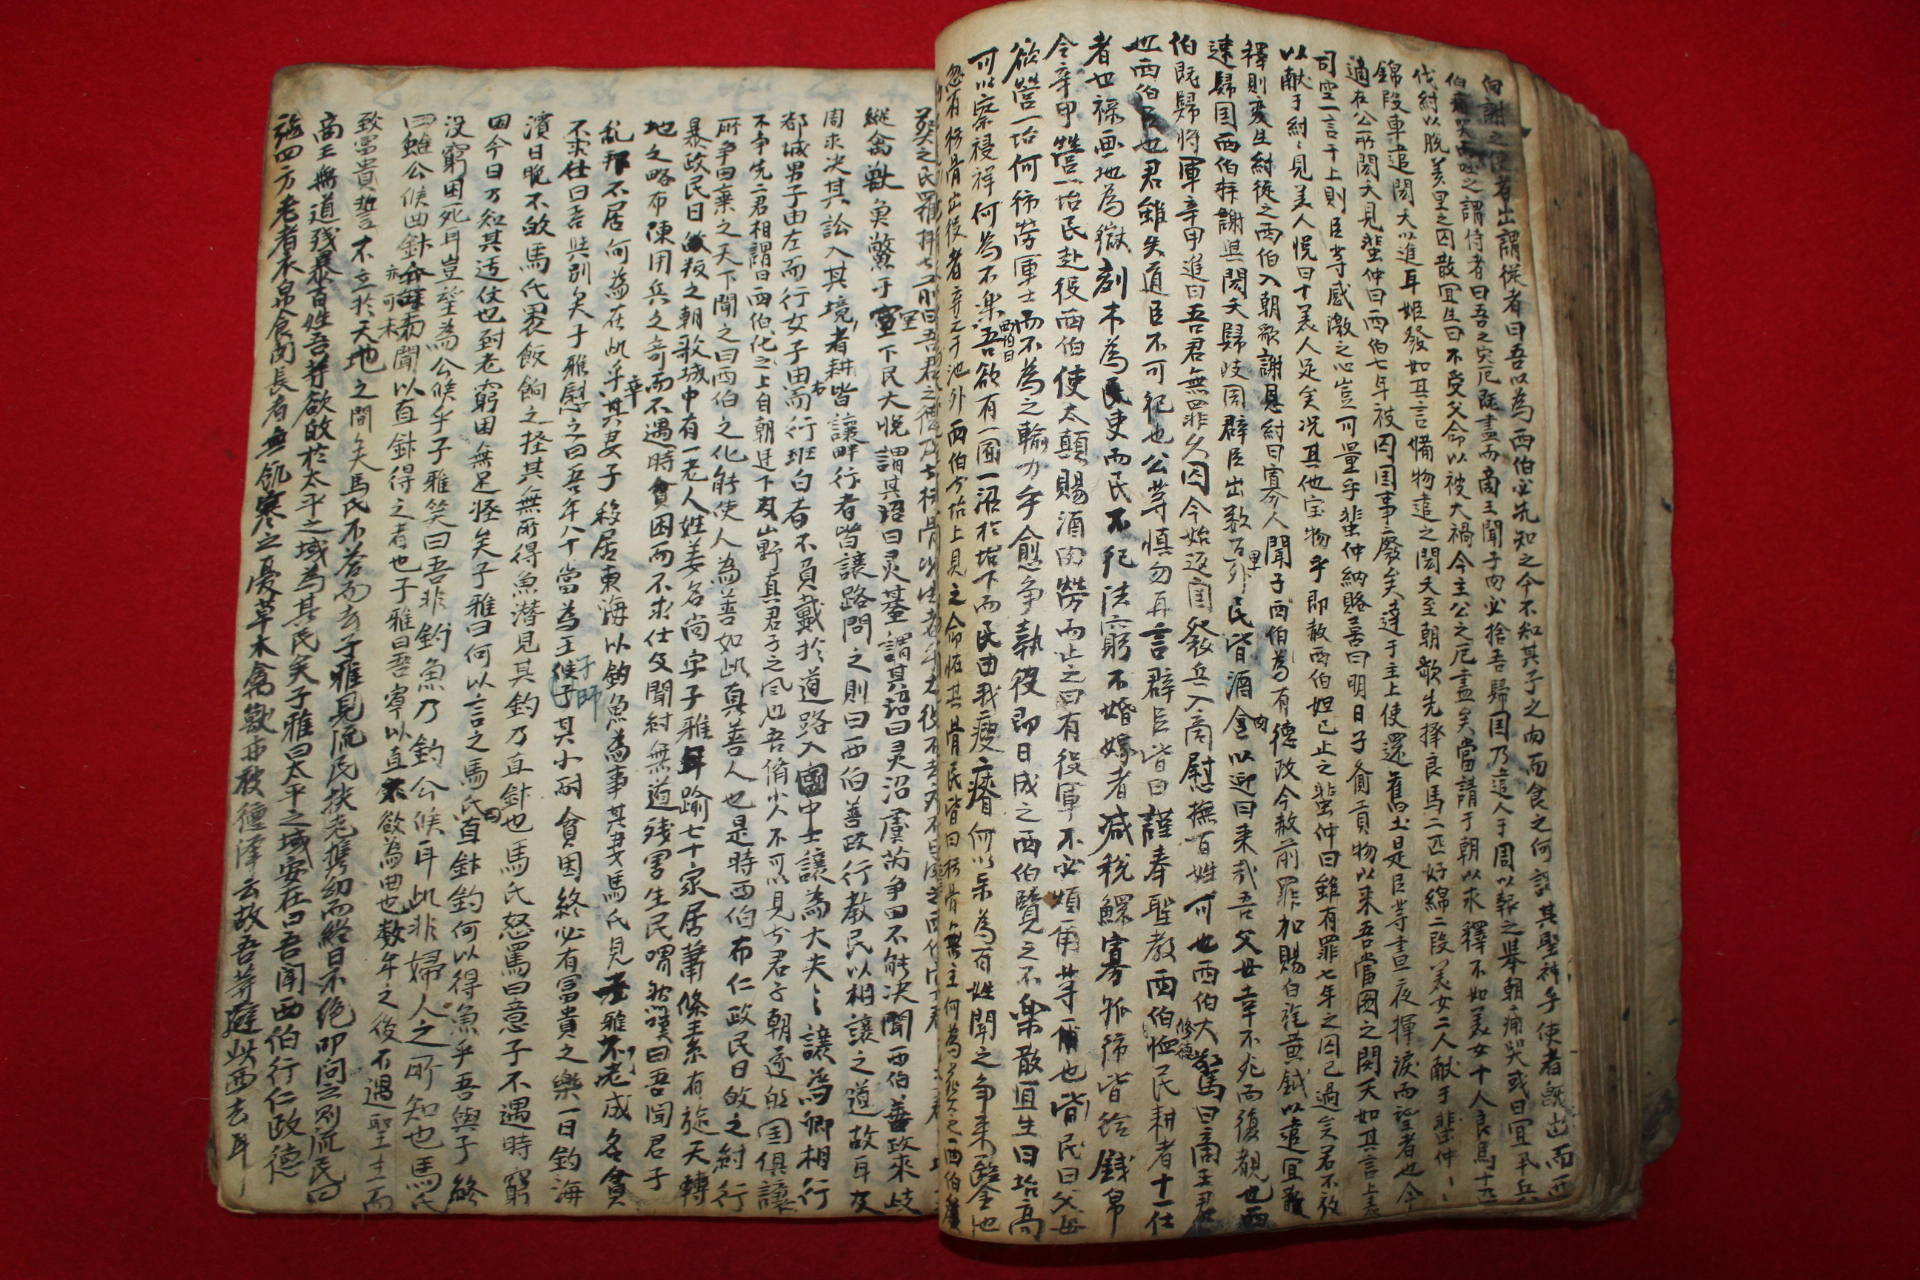 伯謝之使者出謂從者曰吾以為西伯必先知之今不知其子之肉而食之何謂其聖神乎使者旣出而西
伯痛哭西吐之謂侍者曰吾之灾厄旣盡而商王聞子肉必捨吾歸国乃遣人于周以報之擧朝痛哭或曰宜平兵
伐紂以脫羑里之囚散宜生曰不受父命以被大禍今主公之厄盡矣當請于朝以求釋不如美女十人良馬十匹
錦段車遣閎夭以進耳姬發如其言備物遣之閎夭至朝歌先擇良馬二匹好綿二段美女二人献于蜚仲
適在公所閎夭見蜚仲曰西伯七年被囚国事廢矣達于主上使還舊土是臣等晝夜揮淚而望者也今
司空一言干上則臣等感激之心豈可量乎蜚仲納賂喜曰明日子貪貢物以来吾當圖之閎夭如其言上表
以献于紂紂見美人悅曰十美人足矣况其他宝物乎即赦西伯妲己止之蜚仲曰雖有罪七年之囚已過矣君不放
釋則変生紂從之西伯入朝歌謝恩紂曰寡人聞子西伯為有德政今赦前罪加賜白旄黃鉞以遣宜散
速歸国西伯拜謝與閎夭歸歧周群臣出数百里外民皆酒肉以迎曰来哉吾父母幸不死而復覩也西
伯旣歸將軍辛甲進曰吾君無罪久囚今始返国發兵入商慰撫百姓可也西伯大驚曰商王君
也西伯臣也君雖失道臣不可犯也公等慎勿再言群臣皆曰謹奉聖教西伯修德恤民耕者十一仕
者世祿画地為獄刻木為吏而民不犯法窮不婚嫁者減稅鰥寡孤獨皆給錢帛
令辛甲營一坮民赴役西伯使太顚賜酒肉勞而止之曰有役軍不必煩爾等爾也皆民曰父母
欲營一坮何獨勞軍士而不為之輸力乎愈争執役即日成之西伯覽之不樂散宜生曰坮高
可以察祲祥何為不樂西伯曰吾欲有一囿一沼於坮下而民由我瘦瘠何以樂為百姓聞之争来鑿池
忽有枯骨出役者弃之于池外西伯於坮上見之命收其骨民皆曰枯骨無主何為葬之西伯曰
縱禽獸魚鱉于中下民大悅謂其坮曰灵臺謂其沼曰灵沼虞芮争田不能決聞西伯善政来歧
周求決其訟入其境者耕皆讓畔行者皆讓路問之則曰西伯善政行教民以相讓之道故耳及
都城男子由左而行女子由右而行班白者不負戴於道路入國中士讓為大夫大夫讓為卿相行
不争先二君相謂曰西伯化之上自朝廷下及山野真君子之風也吾儕小人不可以見於君子朝遂的国俱讓
所争田棄之天下聞之曰西伯之化能使人為善如此真善人也是時西伯布仁政民日的之紂行
暴政民日叛之朝歌城中有一老人姓姜名尚字子雅年踰七十家居蕭條素有旋天轉
地之略布陳用兵之奇而不遇時貧困而不求仕及聞紂無道殘害生民喟然嘆曰吾聞君子
乱邦不居何為在此乎率其妻子移居東海以釣魚為事其妻馬氏見子雅老成名貧
不求仕曰吾與別矣子雅慰之曰吾年八十當為王侯子師其小耐貧困終必有富貴之樂一日釣海
濱日晚不的馬氏裹飯餉之怪其無所得魚潛見其釣乃直針也馬氏怒罵曰意子不遇時窮
困今日乃知其适仗也對老窮困無足怪矣子雅曰何以言之馬氏曰直針釣何以得魚乎吾與子終
没窮困死耳豈望為公候乎子雅笑曰吾非釣魚乃釣公候耳此非婦人之所知也馬氏
曰雖公候曲針亦可未聞以直針得之者也子雅曰吾寧以直求不欲為曲也数年之後不遇聖主而
致富貴誓不立於天地之間矣馬氏不荅而去子雅見流民扶老携幼而終日不絶叩问之则流民曰
商王無道殘暴百姓吾等欲的於太平之域為其民矣子雅曰太平之域安在曰吾聞西伯行仁政德
溢四方老者衣帛食肉長者無飢寒之憂草木禽獸亦被德澤云故吾等離此西去耳